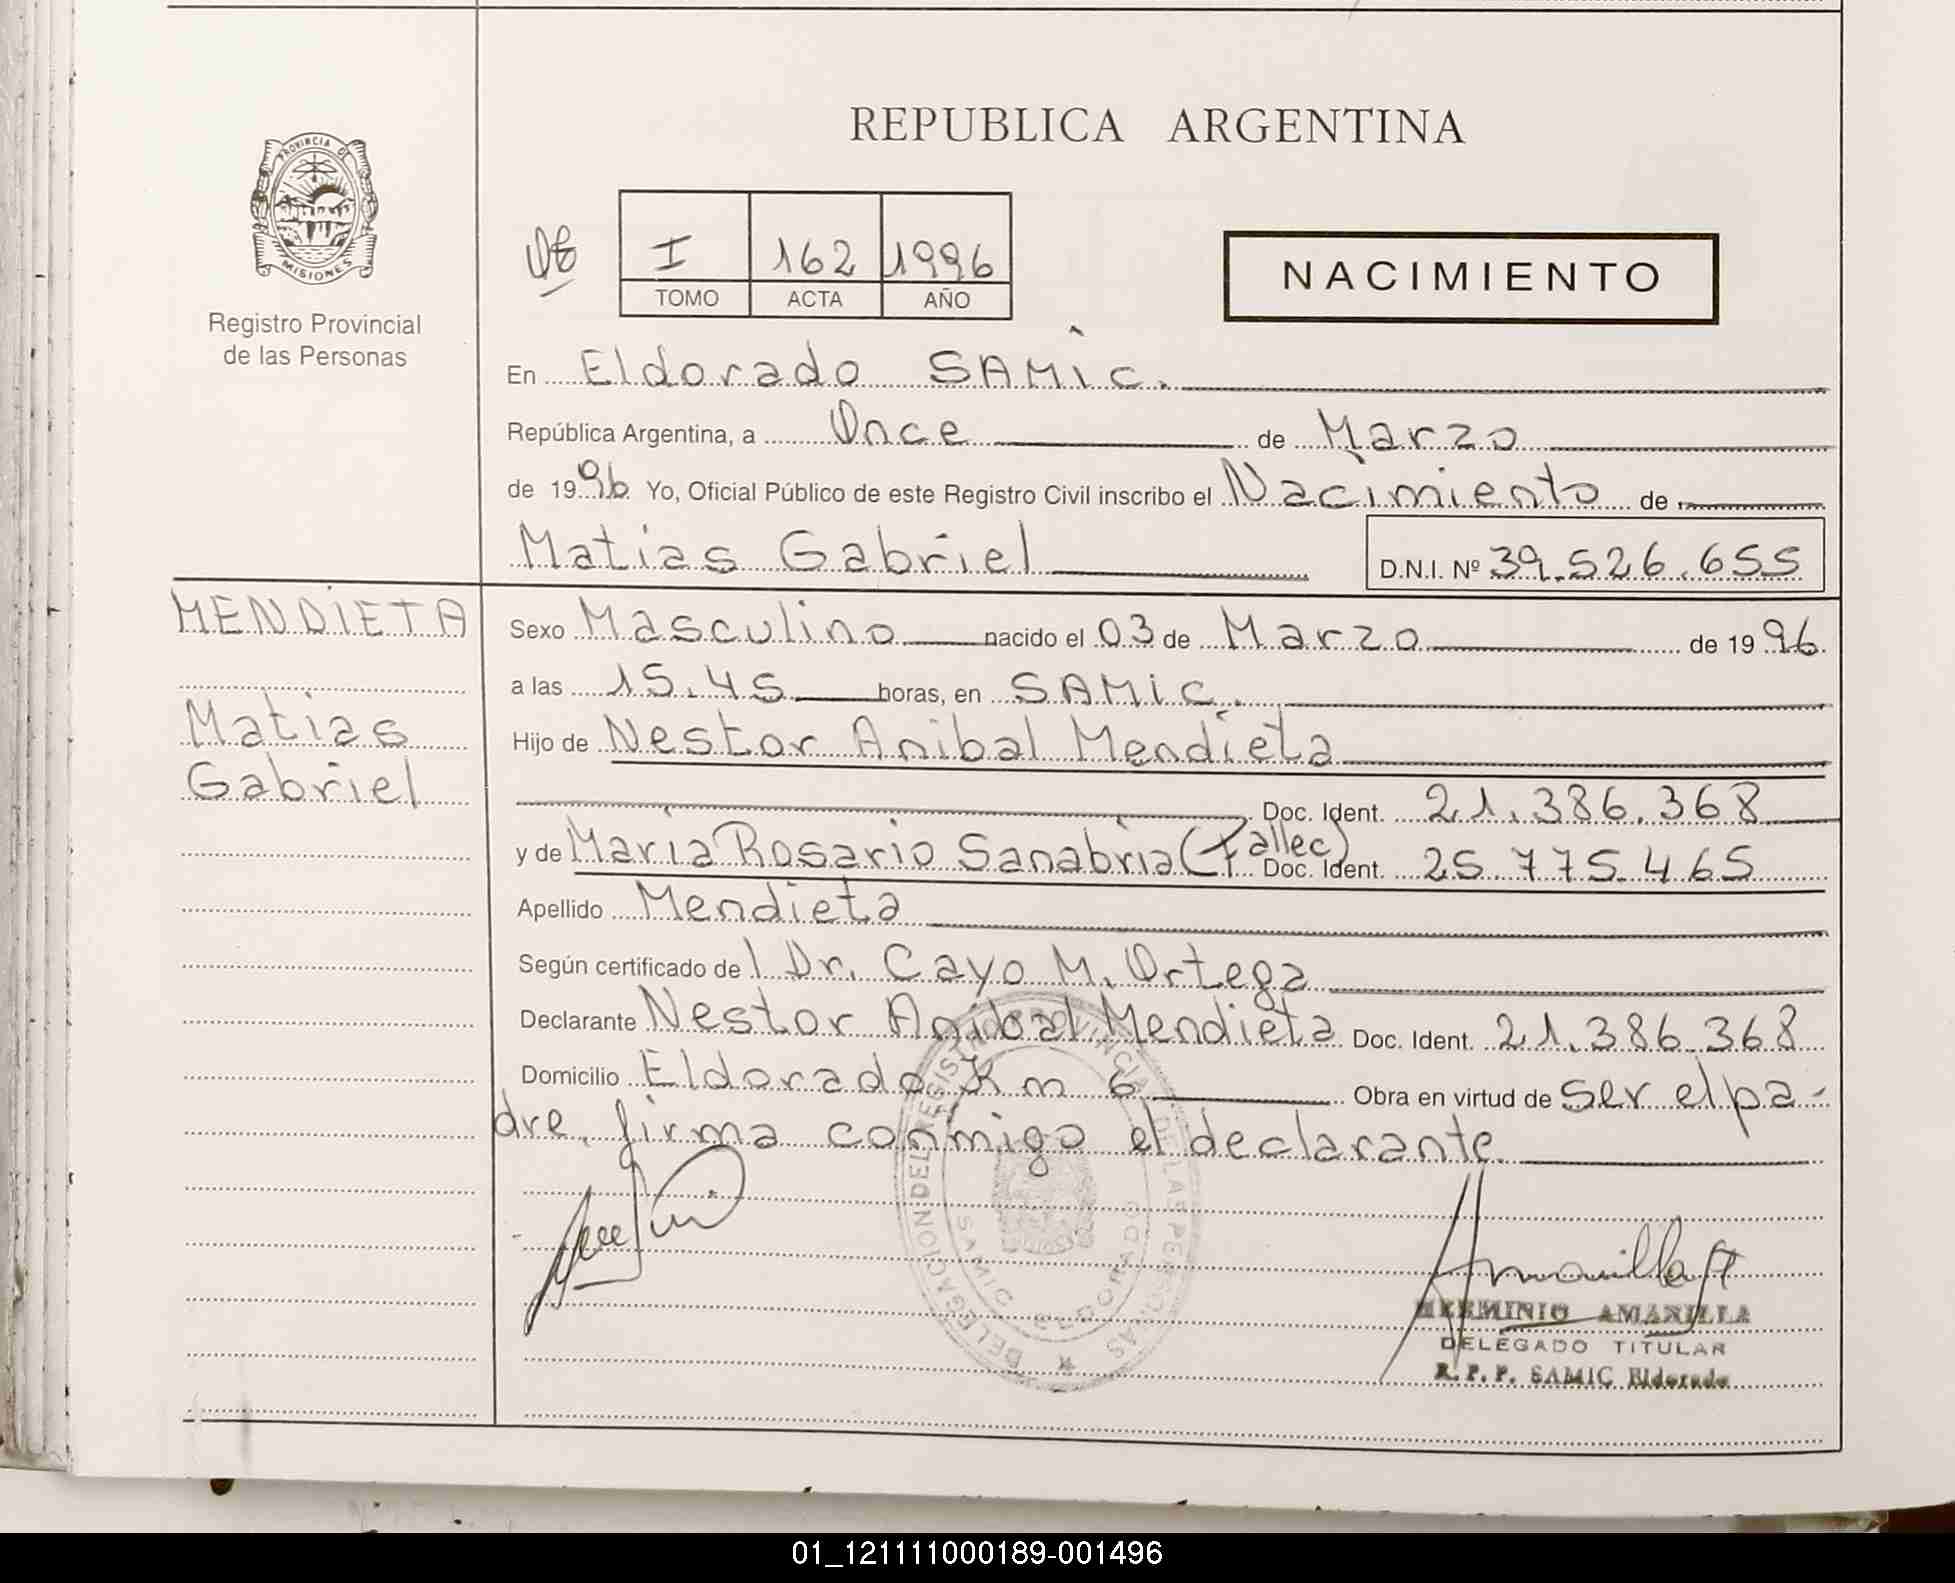 REPUBLICA ARGENTINA
PROVINCIA DE
MISIONES
Registro Provincial
de las Personas
I 162 1996
TOMO ACTA AÑO
NACIMIENTO
En Eldorado SAMIC.
República Argentina, a Once de Marzo
de 1996 Yo, Oficial Público de este Registro Civil inscribo el Nacimiento de
Matias Gabriel D.N.I. Nº 39.526.655
MENDIETA
Matias
Gabriel
Sexo Masculino nacido el 03 de Marzo de 1996
a las 15.45 horas, en SAMIC.
Hijo de Nestor Anibal Mendieta
Doc. Ident. 21.386.368
y de Maria Rosario Sanabria (Fallec) Doc. Ident. 25.775.465
Apellido Mendieta
Según certificado del Dr. Cayo M. Ortega
Declarante Nestor Anibal Mendieta Doc. Ident. 21.386.368
Domicilio Eldorado Km 6 Obra en virtud de ser el pa-
dre, firma conmigo el declarante.
DELEGACION DEL REGISTRO PROVINCIAL DE LAS PERSONAS
SAMIC ELDORADO
HERMINIO AMARILLA
DELEGADO TITULAR
R.P.P. SAMIC Eldorado
01_121111000189-001496